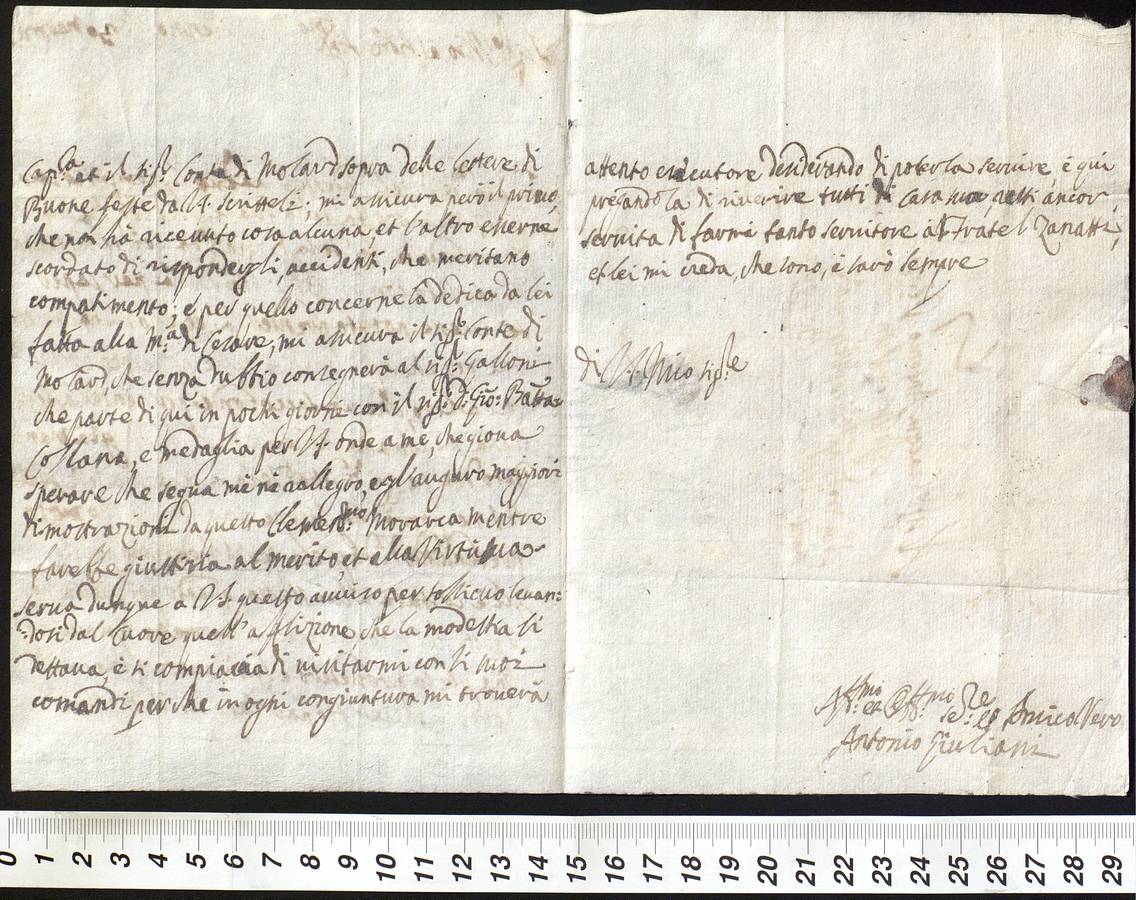 Cap.la et il Sig.r Conte di Molard sopra delle lettere di
Buone feste da V.S. scritteli; mi assicura però il primo,
che non hà riceuuto cosa alcuna, et l'altro esserne
scordato di rispondergli, accidenti, che meritano
compatimento; e per quello concerne la dedica da lei
fatta alla M.a di Cesare, mi assicura il Sig.r Conte di
Molard, che senza dubbio consegnerà al Sig.r Galloni
che parte di qui in pochi giorni con il Sig.r D. Gio: Batta
Collana, e medaglia per V.S. onde a me, che gioua
sperare che segua me ne rallegro, e gl'auguro maggiori
dimostrazioni da questo Clemen.mo Monarca mentre
farebbe giustizia al merito, et alla Virtù sua
serua dunque a V.S. questo auuiso per sollieuo leuan:
:dosi dal Cuore quell'afflizione che la modestia li
dettaua, è si compiaccia di uisitarmi con li suoi
comandi perche in ogni congiuntura mi trouerà
attento esecutore desiderando di poterla seruire è qui
pregandola di riuerire tutti di Casa sua, resti ancor
seruita di farmi tanto seruitore al Fratel Zanatti,
et lei mi creda, che sono, è sarò sempre
di V.S. Mio Sig.re
Aff.mo et Obl.mo Se.re et Amico Vero
Antonio Giuliani